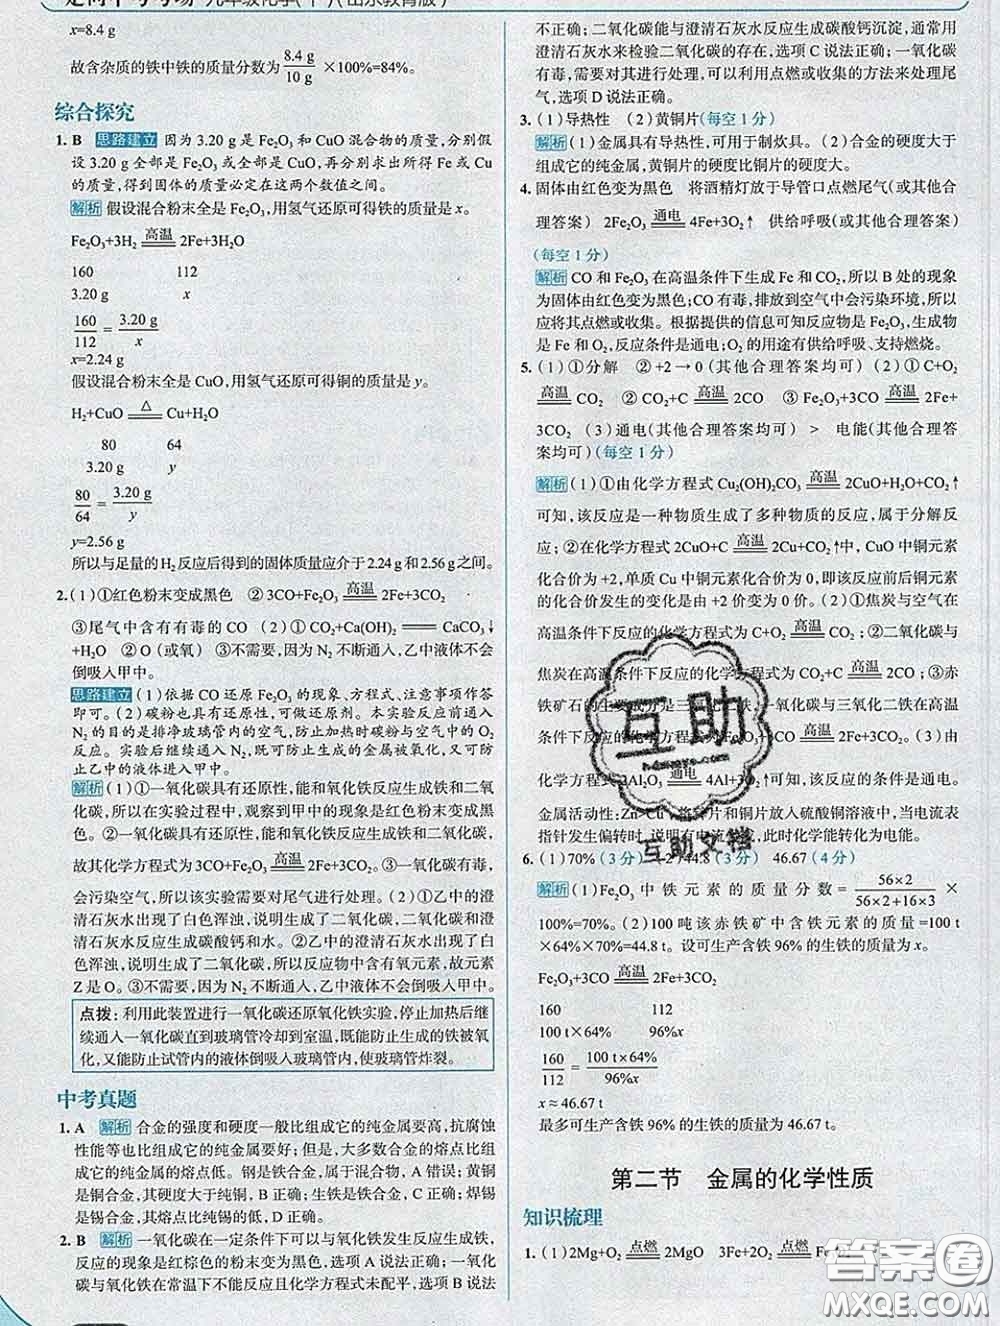 x=8.4 g
故含杂质的铁中铁的质量分数为 8.4 g/10 g ×100%=84%。
综合探究
1. B 思路建立 因为 3.20 g 是 Fe₂O₃ 和 CuO 混合物的质量,分别假
设 3.20 g 全部是 Fe₂O₃ 或全部是 CuO,再分别求出所得 Fe 或 Cu
的质量,得到固体的质量必定在这两个数值之间。
解析 假设混合粉末全是 Fe₂O₃,用氢气还原可得铁的质量是 x。
Fe₂O₃+3H₂ 高温 2Fe+3H₂O
160 112
3.20 g x
160/112 = 3.20 g/x
x=2.24 g
假设混合粉末全是 CuO,用氢气还原可得铜的质量是 y。
H₂+CuO △ Cu+H₂O
80 64
3.20 g y
80/64 = 3.20 g/y
y=2.56 g
所以与足量的 H₂ 反应后得到的固体质量应介于 2.24 g 和 2.56 g 之间。
2. (1)①红色粉末变成黑色 ②3CO+Fe₂O₃ 高温 2Fe+3CO₂
③尾气中含有有毒的 CO (2)①CO₂+Ca(OH)₂ ═ CaCO₃↓
+H₂O ②O(或氧) ③不需要,因为 N₂ 不断通入,乙中液体不会
倒吸入甲中。
思路建立 (1)依据 CO 还原 Fe₂O₃ 的现象、方程式、注意事项作答
即可。(2)碳粉也具有还原性,可做还原剂。本实验反应前通入
N₂ 的目的是排净玻璃管内的空气,防止加热时碳粉与空气中的 O₂
反应。实验后继续通入 N₂,既可防止生成的金属被氧化,又可防
止乙中的液体进入甲中。
解析 (1)①一氧化碳具有还原性,能和氧化铁反应生成铁和二氧
化碳,所以在实验过程中,观察到甲中的现象是红色粉末变成黑
色。②一氧化碳具有还原性,能和氧化铁反应生成铁和二氧化碳,
故其化学方程式为 3CO+Fe₂O₃ 高温 2Fe+3CO₂。③一氧化碳有毒,
会污染空气,所以该实验需要对尾气进行处理。(2)①乙中的澄
清石灰水出现了白色浑浊,说明生成了二氧化碳,二氧化碳和澄
清石灰水反应生成碳酸钙和水。②乙中的澄清石灰水出现了白
色浑浊,说明生成了二氧化碳,所以反应物中含有氧元素,故元素
Z 是 O。③不需要,因为 N₂ 不断通入,乙中液体不会倒吸入甲中。
点拨:利用此装置进行一氧化碳还原氧化铁实验,停止加热后继
续通入一氧化碳直到玻璃管冷却到室温,既能防止生成的铁被氧
化,又能防止试管内的液体倒吸入玻璃管内,使玻璃管炸裂。
中考真题
1. A 解析 合金的强度和硬度一般比组成它的纯金属要高,抗腐蚀
性能等也比组成它的纯金属要好;但是,大多数合金的熔点比组
成它的纯金属的熔点低。钢是铁合金,属于混合物,A 错误;黄铜
是铜合金,其硬度大于纯铜,B 正确;生铁是铁合金,C 正确;焊锡
是锡合金,其熔点比纯锡的低,D 正确。
2. B 解析 一氧化碳在一定条件下可以与氧化铁发生反应生成铁,
反应的现象是红棕色的粉末变为黑色,选项 A 说法正确;一氧化
碳与氧化铁在常温下不能反应且化学方程式未配平,选项 B 说法
不正确;二氧化碳能与澄清石灰水反应生成碳酸钙沉淀,通常用
澄清石灰水来检验二氧化碳的存在,选项 C 说法正确;一氧化碳
有毒,需要对其进行处理,可以利用点燃或收集的方法来处理尾
气,选项 D 说法正确。
3. (1)导热性 (2)黄铜片(每空 1 分)
解析 (1)金属具有导热性,可用于制炊具。(2)合金的硬度大于
组成它的纯金属,黄铜片的硬度比铜片的硬度大。
4. 固体由红色变为黑色 将酒精灯放于导管口点燃尾气(或其他合
理答案) 2Fe₂O₃ 通电 4Fe+3O₂↑ 供给呼吸(或其他合理答案)
(每空 1 分)
解析 CO 和 Fe₂O₃ 在高温条件下生成 Fe 和 CO₂,所以 B 处的现象
为固体由红色变为黑色;CO 有毒,排放到空气中会污染环境,所以
应将其点燃或收集。根据提供的信息可知反应物是 Fe₂O₃,生成物
是 Fe 和 O₂,反应条件是通电;O₂ 的用途有供给呼吸、支持燃烧。
5. (1)①分解 ②+2→0(其他合理答案均可) (2)①C+O₂
高温 CO₂ ②CO₂+C 高温 2CO ③Fe₂O₃+3CO 高温 2Fe+
3CO₂ (3)通电(其他合理答案均可) > 电能(其他合理答
案均可)(每空 1 分)
解析 (1)①由化学方程式 Cu₂(OH)₂CO₃ 高温 2CuO+H₂O+CO₂↑
可知,该反应是一种物质生成了多种物质的反应,属于分解反
应;②在化学方程式 2CuO+C 高温 2Cu+CO₂↑中,CuO 中铜元素
化合价为+2,单质 Cu 中铜元素化合价为 0,即该反应前后铜元素
的化合价发生的变化是由+2 价变为 0 价。(2)①焦炭与空气在
高温条件下反应的化学方程式为 C+O₂ 高温 CO₂;②二氧化碳与
焦炭在高温条件下反应的化学方程式为 CO₂+C 高温 2CO;③赤
铁矿石的主要成分是三氧化二铁,一氧化碳与三氧化二铁在高温
条件下反应的化学方程式为 Fe₂O₃+3CO 高温 2Fe+3CO₂。(3)由
化学方程式 2Al₂O₃ 通电 4Al+3O₂↑可知,该反应的条件是通电。
金属活动性:Zn>Cu 锌片和铜片放入硫酸铜溶液中,当电流表
指针发生偏转时,说明有电流 ,此时化学能转化为电能。
6. (1)70%(3 分) (2)44.8(3 分) 46.67(4 分)
解析 (1)Fe₂O₃ 中铁元素的质量分数= 56×2/56×2+16×3 ×
100%=70%。(2)100 吨该赤铁矿中含铁元素的质量=100 t
×64%×70%=44.8 t。设可生产含铁 96%的生铁的质量为 x。
Fe₂O₃+3CO 高温 2Fe+3CO₂
160 112
100 t×64% 96%x
160/112 = 100 t×64%/96%x
x≈46.67 t
最多可生产含铁 96%的生铁的质量为 46.67 t。
第二节 金属的化学性质
知识梳理
1. (1)2Mg+O₂ 点燃 2MgO 3Fe+2O₂ 点燃
互助
互助文档
答案圈
MXQE.COM